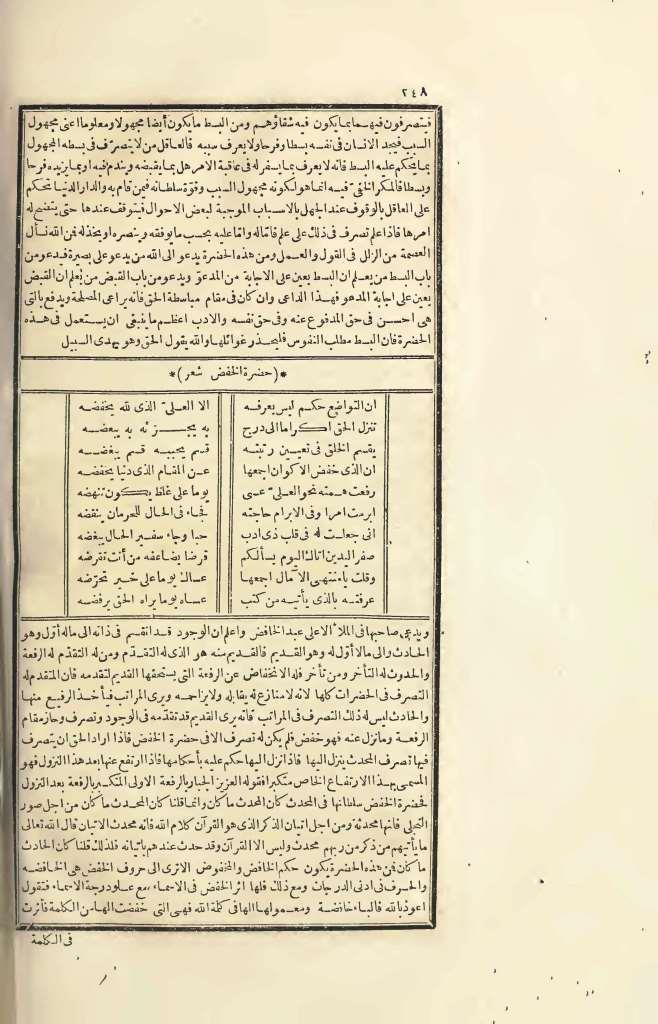 ٢٤٨
فيتصرفون فيهما بما يكون فيه شقاؤهم ومن البسط ما يكون أيضا مجهولا ومعلوما اعنى مجهول
السبب فيجد الانسان فى نفسه بسطا وفرحا ولا يعرف سببه فالعاقل من لا يتصرّف فى بسطه المجهول
بما يحكم عليه البسط فانه لا يعرف بما يسفر له فى عاقبة الامر هل بما يقبضه ويندم فيه او بما يزيده فرحا
وبسطا فالمكر الخفىّ فيه انما هو لكونه مجهول السبب وقوّة سلطانه فيمن قام به والدار الدنيا تحكم
على العاقل بالوقوف عند الجهل بالاسباب الموجبة لبعض الاحوال فيتوقف عندها حتى يتضح له
امرها فاذا علم تصرف فى ذلك على علم فاماله واما عليه بحسب ما يوفقه وينصره او يخذله فمن الله نسأل
العصمة من الزلل فى القول والعمل ومن هذه الحضرة يدعو الى الله من يدعو على بصيرة فيدعو من
باب البسط من يعلم ان البسط يعين على الاجابة من المدعوّ ويدعو من باب القبض من يعلم ان القبض
يعين على اجابة المدعو فهذا الداعى وان كان فى مقام مباسطة الحق فانه يراعى المصلحة ويدفع بالتى
هى احسن فى حق المدفوع عنه وفى حق نفسه والادب اعظم ما ينبغى ان يستعمل فى هذه
الحضرة فان البسط مطلب النفوس فليحذر غوائلها والله يقول الحق وهو يهدى السبيل
*(حضرة الخفض شعر)*
ان التواضع حكم ليس يعرفه الا العلىّ الذى لله يخفضه
تنزل الحق اكراما الى درج به يجزئه به يبعضه
يقسم الخلق فى تعيين رتبته قسم يحببه قسم يبغضه
ان الذى خفض الاكوان اجمعها عن المقام الذى دنيا يخفضه
رفعت همته نحو العلىّ عسى يوما على غلظ يكون تنهضه
ابرمت امرا وفى الابرام حاجته فجاء فى الحال للحرمان ينقضه
انى جعلت له فى قلب ذى ادب حبا وجاء سفير الحال يبغضه
صفر اليدين اتاك اليوم يسألكم قرضا يضاعفه من أنت تقرضه
وقلت يا منتهى الآمال اجمعها عساك يوما على خير تحرّضه
عرفته بالذى يأتيه من كتب عساه يوما يراه الحق يرفضه
ويدعى صاحبها فى الملأ الاعلى عبد الخافض واعلم ان الوجود قد انقسم فى ذاته الى ماله أوّل وهو
الحادث والى ما لا أوّل له وهو القديم فالقديم منه هو الذى له التقدّم ومن له التقدّم له الرفعة
والحدوث له التأخر ومن تأخر فله الانخفاض عن الرفعة التى يستحقها القديم لتقدمه فان المتقدم له
التصرف فى الحضرات كلها لانه لا منازع له يقابله ولا يزاحمه ويرى المراتب فيأخذ الرفيع منها
والحادث ليس له ذلك التصرف فى المراتب فانه يرى القديم قد تقدّمه فى الوجود وتصرف وحاز مقام
الرفعة وما نزل عنه فهو خفض فلم يكن له تصرف الا فى حضرة الخفض فاذا اراد الحق ان يتصرف
فيها تصرف المحدث ينزل اليها فاذا نزل اليها حكم عليه بأحكامها فاذا ارتفع عنها بعد هذا النزول فهو
المسمى بهذا الارتفاع الخاص متكبرا فقوله العزيز الجبار بالرفعة الاولى المتكبر بالرفعة بعد النزول
فحضرة الخفض سلطانها فى المحدث كان المحدث ما كان وانما قلنا كان المحدث ما كان من اجل صور
التجلى فانها محدثة ومن اجل اتيان الذكر الذى هو القرآن كلام الله فانه محدث الاتيان قال الله تعالى
ما يأتيهم من ذكر من ربهم محدث وليس الا القرآن وقد حدث عندهم باتيانه فلذلك قلنا كان الحادث
ما كان فمن هذه الحضرة يكون حكم الخافض والمخفوض الا ترى الى حروف الخفض هى الخافضة
والحرف فى ادنى الدرجات ومع ذلك فلها اثر الخفض فى الاسماء مع علو درجة الاسماء فتقول
اعوذ بالله فالباء خافضة ومعمولها الهاء فى كلمة الله فهى التى خفضت الهاء من الكلمة فأثرت
فى الكلمة